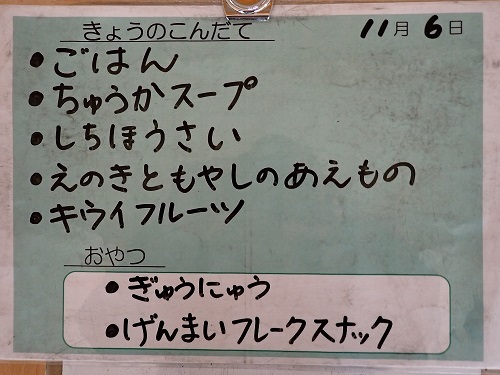 きょうのこんだて 11月6日
•ごはん
•ちゅうかスープ
•しちほうさい
•えのきともやしのあえもの
•キウイフルーツ
おやつ
•ぎゅうにゅう
•げんまいフレークスナック